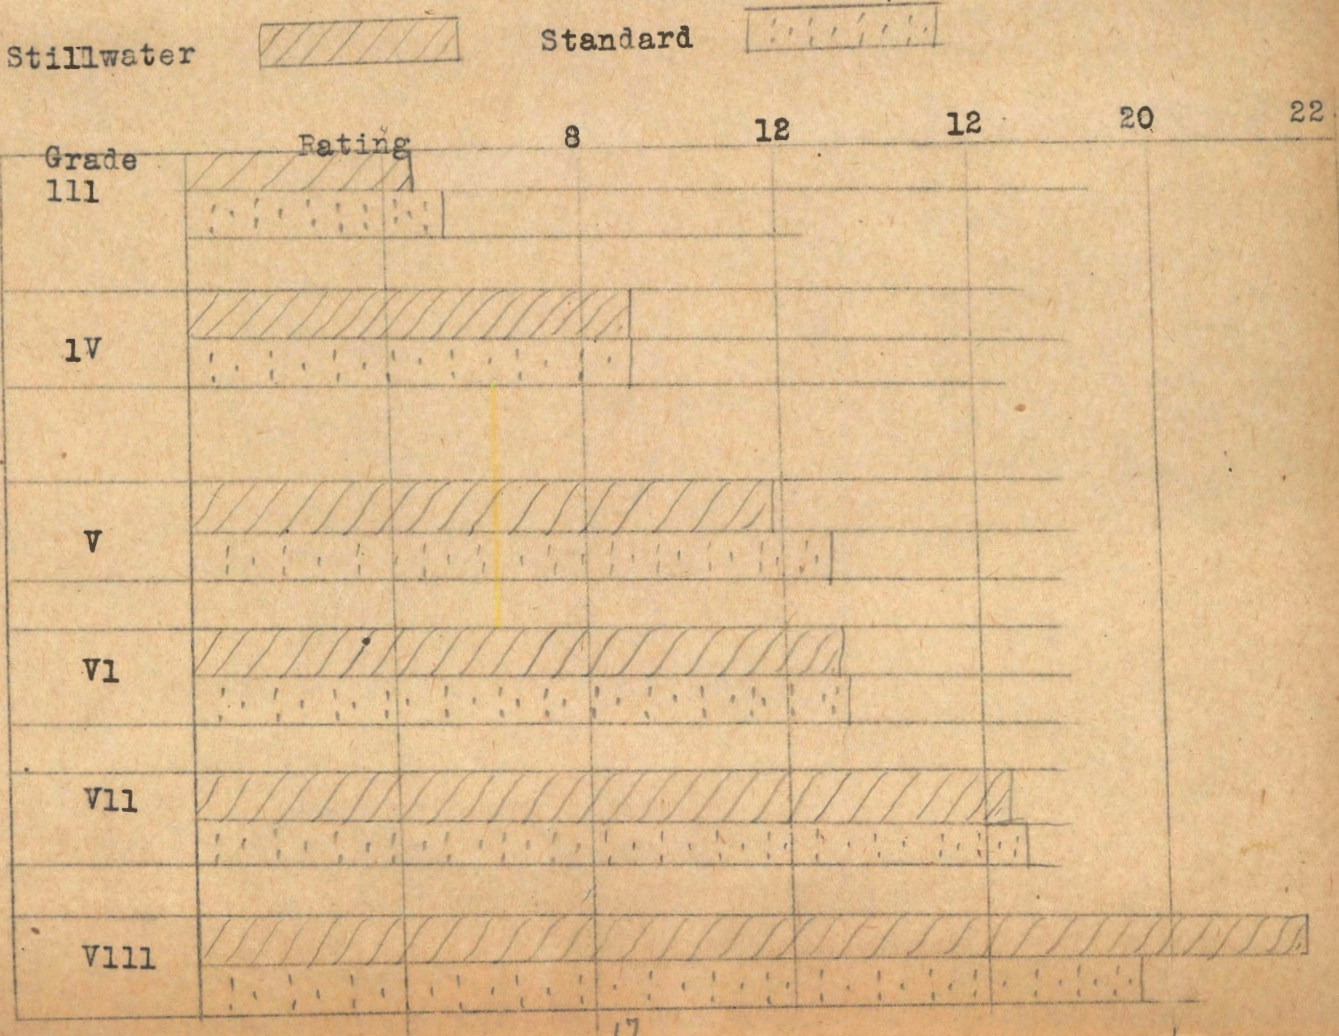 Stillwater Standard
Rating 8 12 12 20 22
Grade
111
1V
V
V1
V11
V111
17